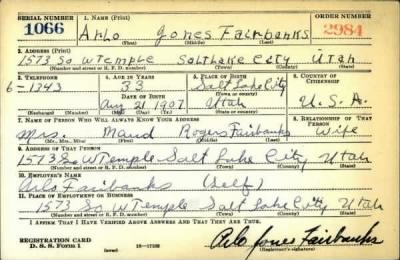 SERIAL NUMBER 1. NAME (Print) ORDER NUMBER
1066 Arlo Jones Fairbanks 2984
(First) (Middle) (Last)
2. ADDRESS (Print)
1573 So W Temple Salt Lake City Utah
(Number and street or R. F. D. number) (Town) (County) (State)
3. TELEPHONE 4. AGE IN YEARS 5. PLACE OF BIRTH 6. COUNTRY OF CITIZENSHIP
6-1343 33 Salt Lake City
DATE OF BIRTH (Town) (County)
Aug 21 1907 Utah U.S.A.
(Mo.) (Day) (Yr.) (State or country)
7. NAME OF PERSON WHO WILL ALWAYS KNOW YOUR ADDRESS 8. RELATIONSHIP OF THAT PERSON
Mrs. Maud Rogers Fairbanks Wife
(Mr., Mrs., Miss) (First) (Middle) (Last)
9. ADDRESS OF THAT PERSON
1573 So W Temple Salt Lake City Utah
(Number and street or R. F. D. number) (Town) (County) (State)
10. EMPLOYER'S NAME
Arlo Fairbanks (self)
11. PLACE OF EMPLOYMENT OR BUSINESS
1573 So W Temple Salt Lake City Utah
(Number and street or R. F. D. number) (Town) (County) (State)
I AFFIRM THAT I HAVE VERIFIED ABOVE ANSWERS AND THAT THEY ARE TRUE.
REGISTRATION CARD
D. S. S. Form 1 16-17105 Arlo Jones Fairbanks
(Registrant's signature)